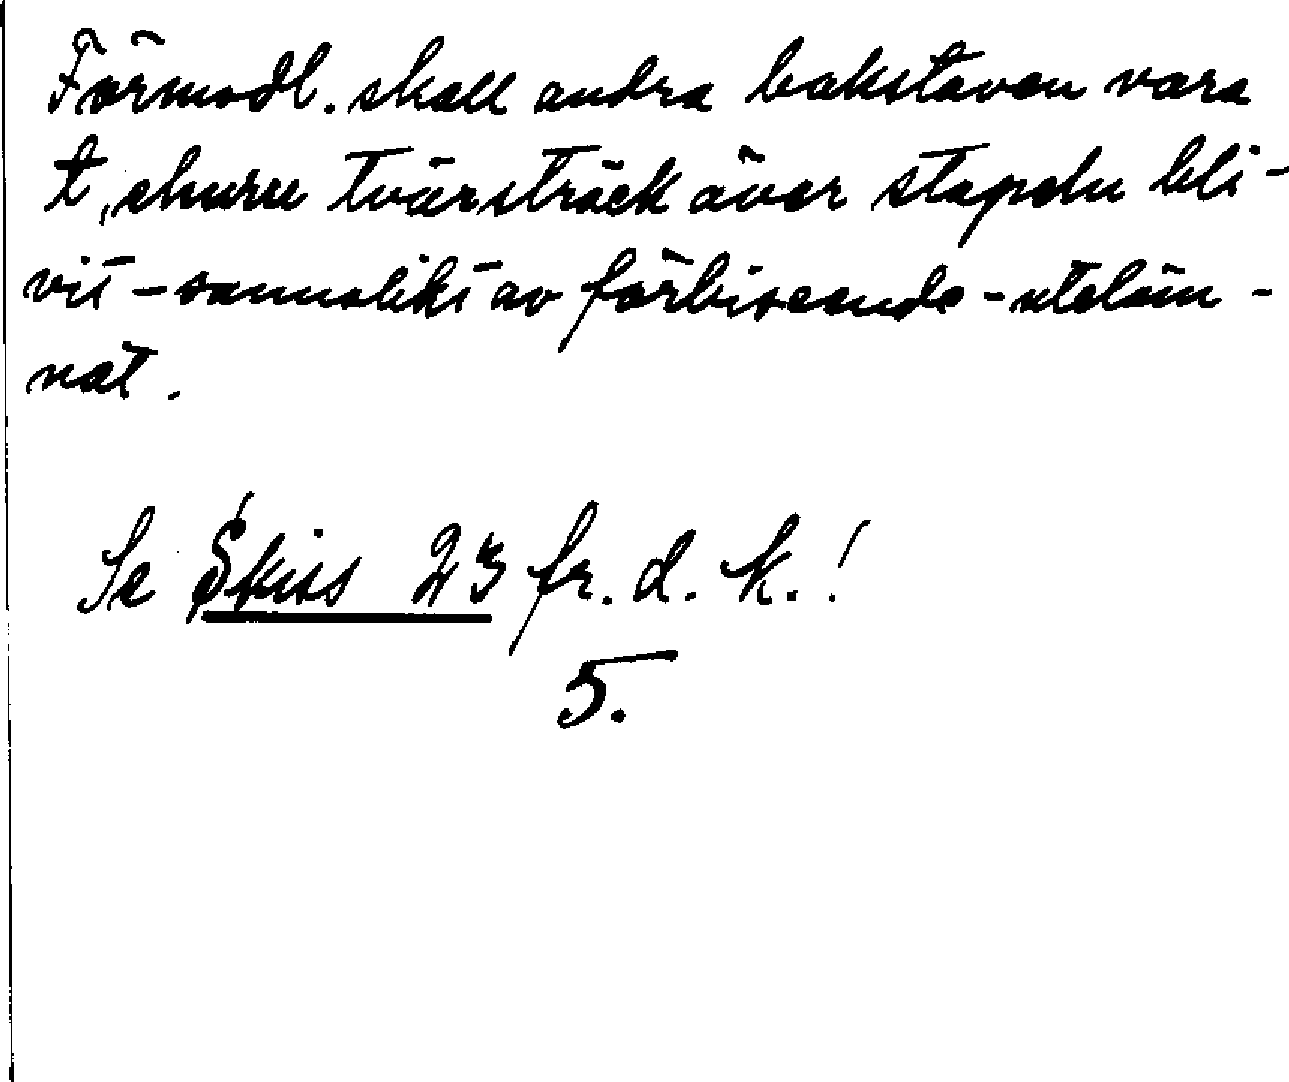 Förmodl. skall andra bokstaven vara
t, ehuru tvärsträck över stapeln bli-
vit - sannolikt av förbiseende - uteläm-
nat.
Se Skiss 23 fr. d. k.!
5.